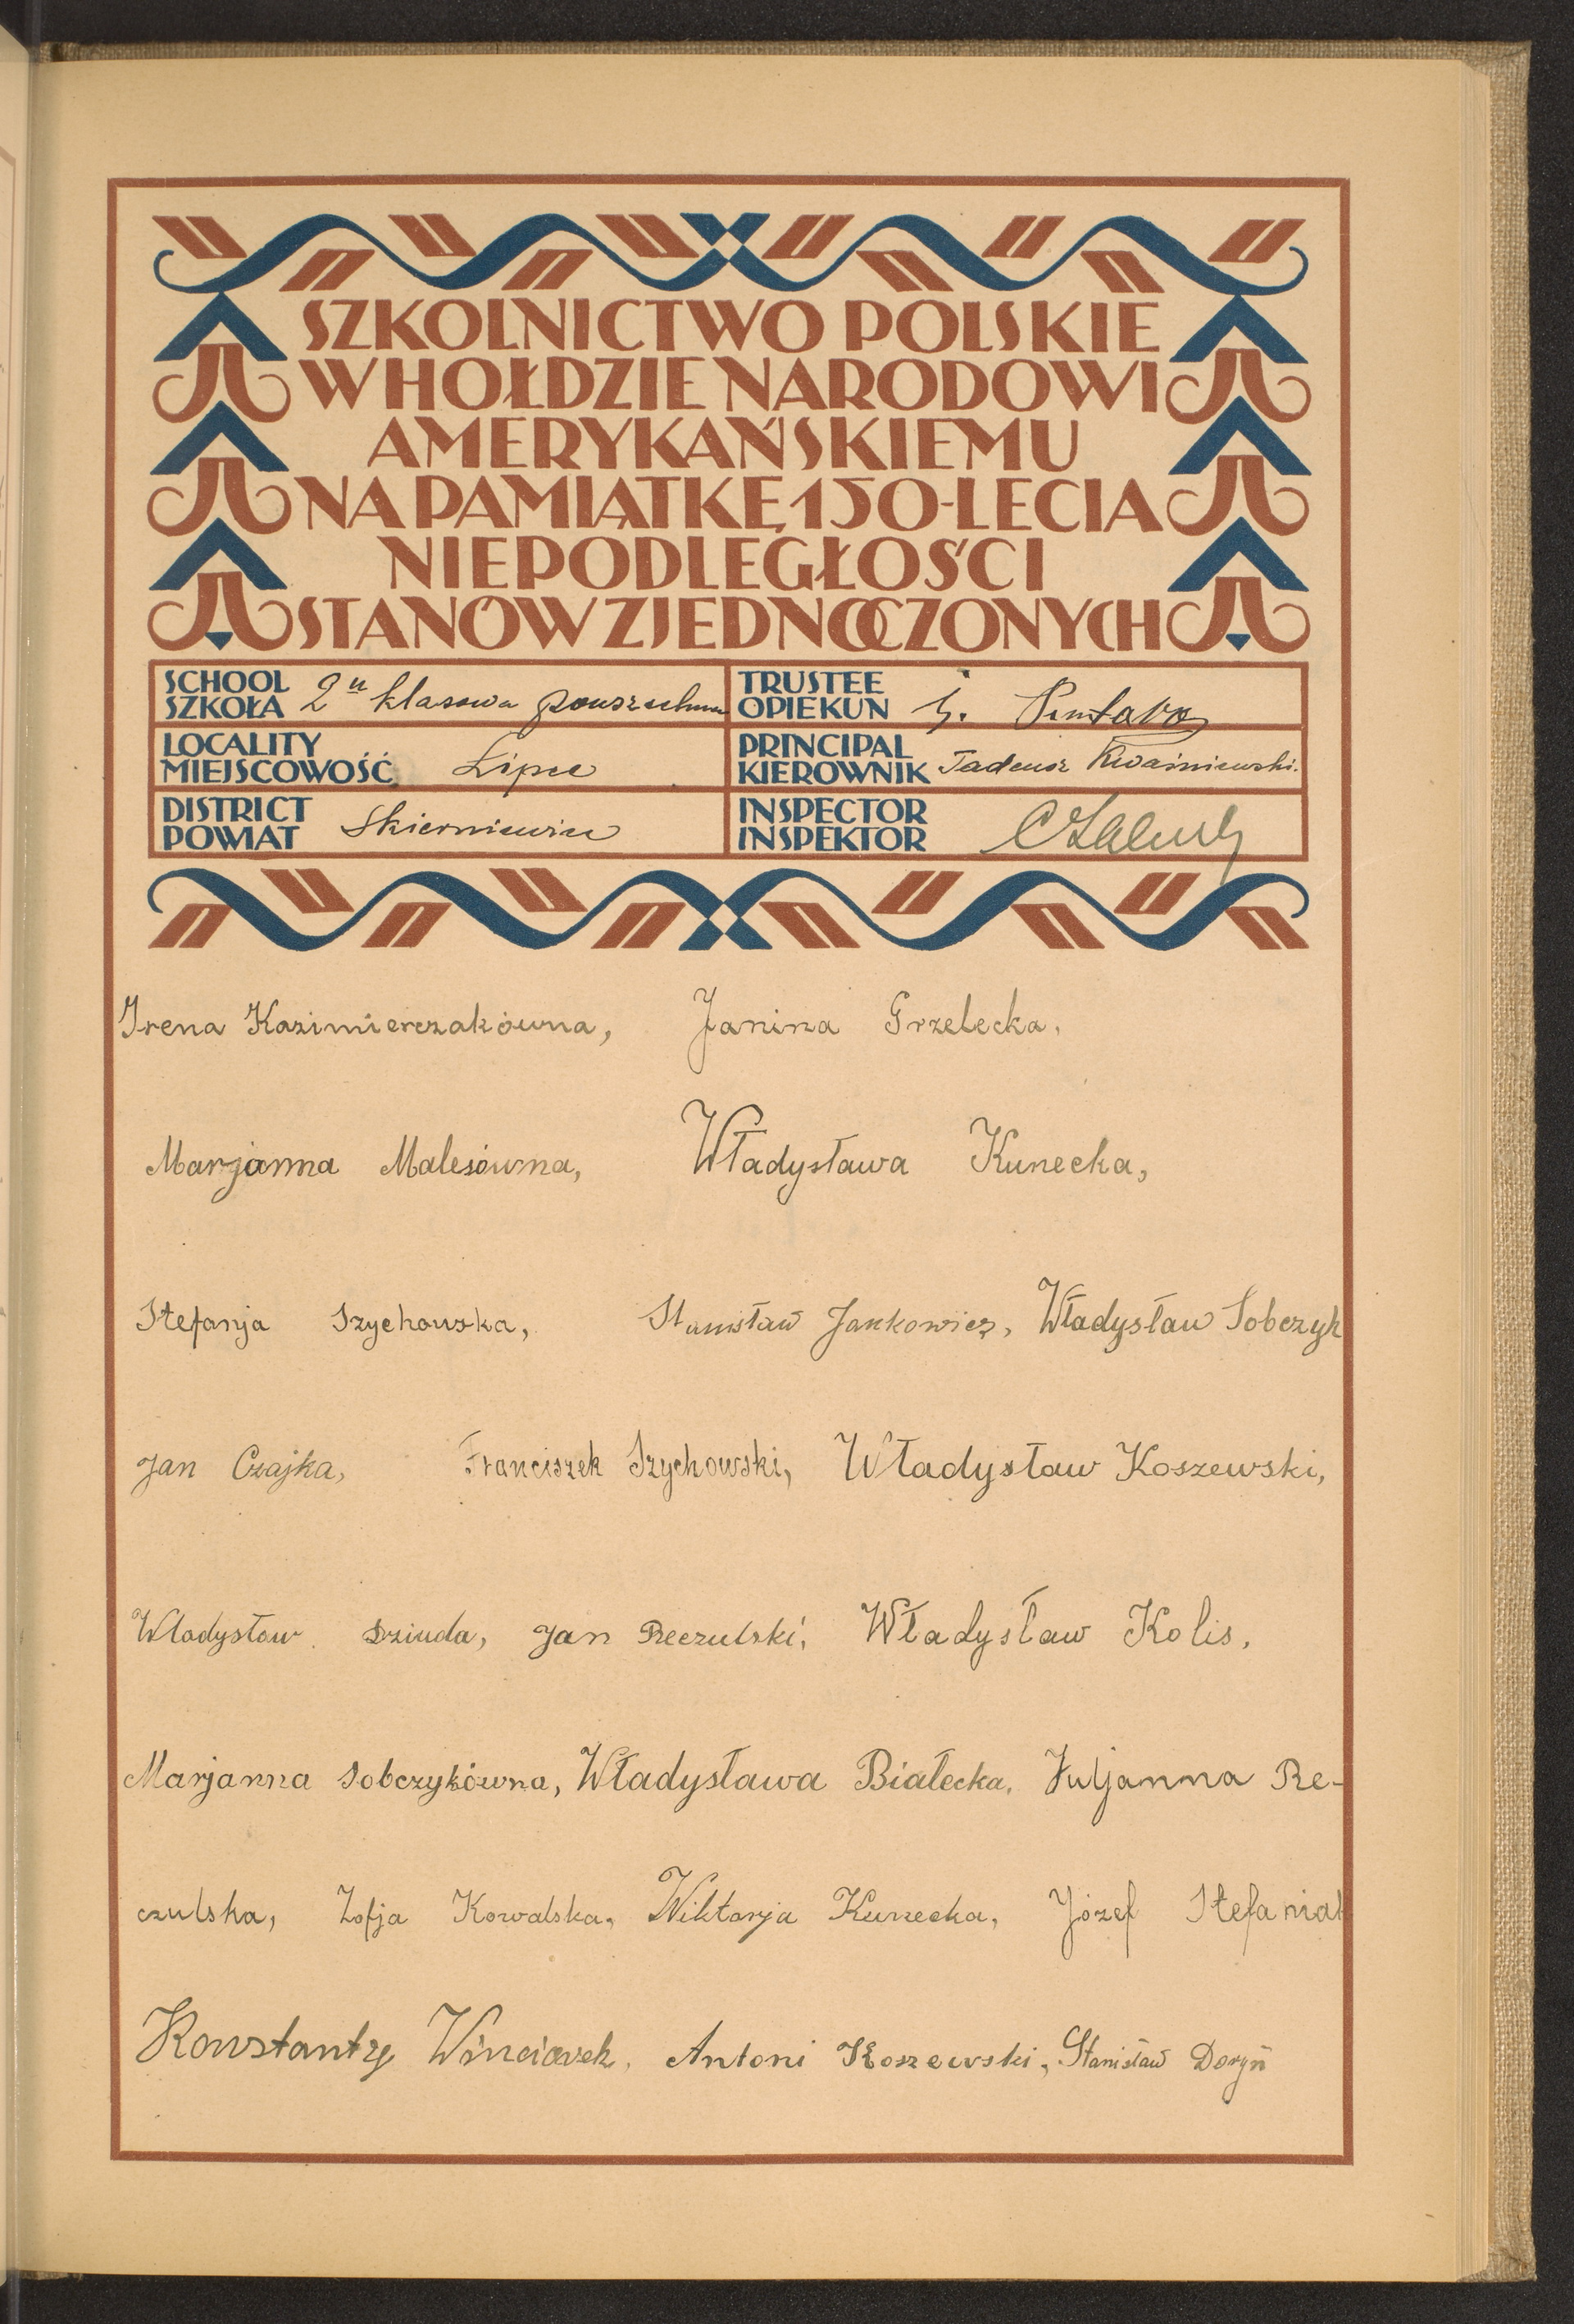 SZKOLNICTWO POLSKIE
W HOŁDZIE NARODOWI
AMERYKAŃSKIEMU
NA PAMIĄTKĘ 150-LECIA
NIEPODLEGŁOŚCI
STANÓW ZJEDNOCZONYCH
SCHOOL SZKOŁA 2u klasowa powszechna
TRUSTEE OPIEKUN
LOCALITY MIEJSCOWOŚĆ Lipce
PRINCIPAL KIEROWNIK Tadeusz Kwaśniewski.
DISTRICT POWIAT Skierniewice
INSPECTOR INSPEKTOR
Irena Kazimierczakówna, Janina Grzelecka,
Marjanna Malesówna, Władysława Kunecka,
Stefanja Szychowska, Stanisław Jankowicz, Władysław Sobczyk
Jan Czajka, Franciszek Szychowski, Władysław Koszewski,
Władysław Dziuda, Jan Reczulski, Władysław Kolis,
Marjanna Sobczykówna, Władysława Białecka, Juljanna Re-
czulska, Zofja Kowalska, Wiktorja Kunecka, Józef Stefaniak
Konstanty Winciorek, Antoni Koszewski, Stanisław Doryń